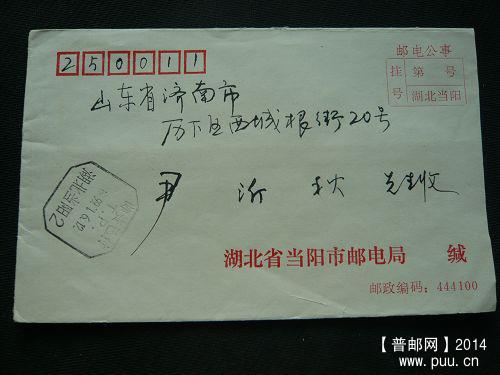 250011
邮电公事
挂号
第 号
湖北当阳
山东省济南市
历下区西城根街20号
尹 沂 秋 先生收
湖北当阳2
湖北省当阳市邮电局 缄
邮政编码：444100
【普邮网】2014
www.puu.cn